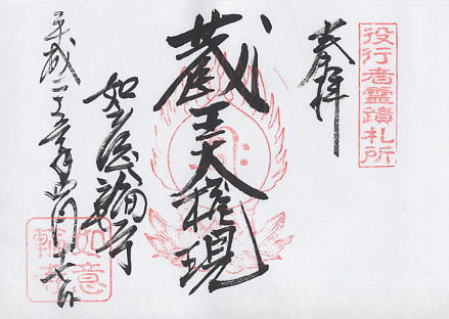 役行者霊蹟札所
奉拝
蔵王大権現
如意輪寺
平成二十五年四月十七日
如意
輪寺